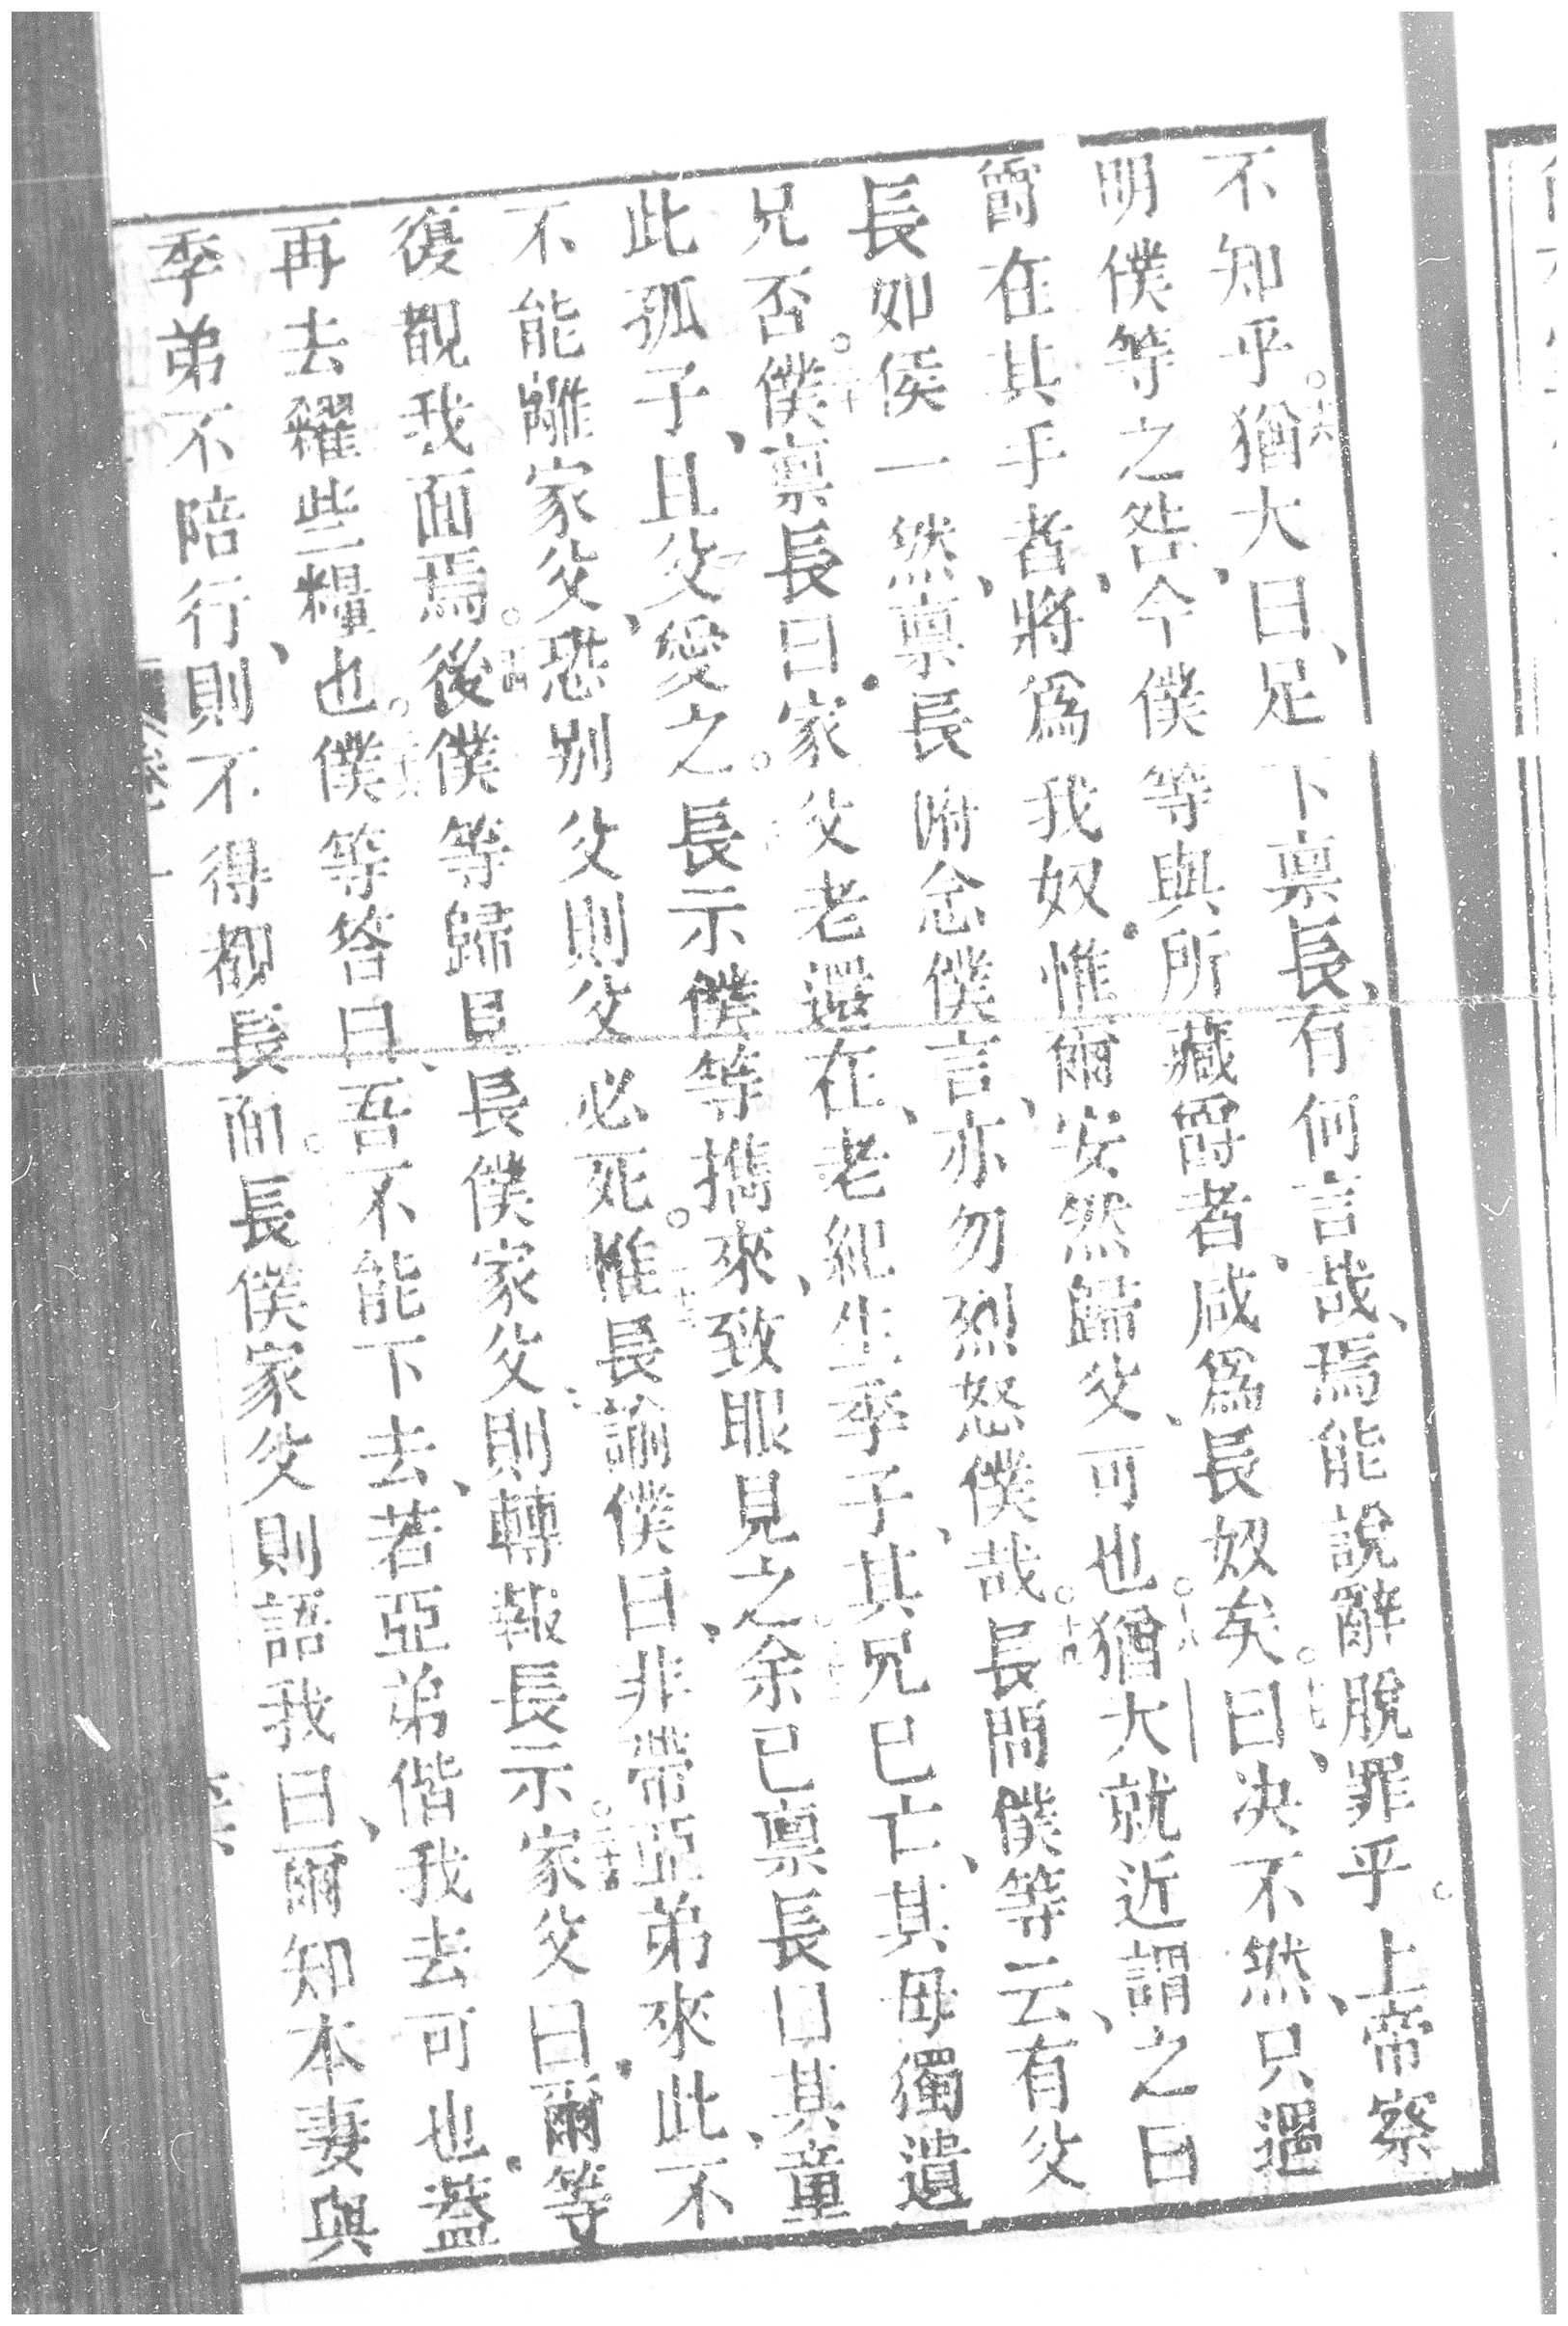 不知乎。猶大曰、足下禀長、有何言哉、焉能說辭脫罪乎。上帝察
明僕等之咎、今僕等與所藏爵者、咸爲長奴矣。曰、决不然、只遇
爵在其手者、將爲我奴、惟爾安然歸父、可也。猶大就近謂之曰
長如侯一然、禀長附念僕言、亦勿烈怒僕哉。長問僕等云、有父
兄否。僕禀長曰、家父老還在、老紀生季子、其兄已亡、其母獨遺
此孤子、且父愛之。長示僕等携來、致眼見之。余已禀長曰、其童
不能離家父、恐别父則父必死。惟長諭僕曰、非帶亞弟來此、不
復覩我面焉。後僕等歸見長僕家父、則轉報長示。家父曰、爾等
再去糴些糧也。僕等答曰、吾不能下去、若亞弟偕我去可也、蓋
季弟不陪行、則不得覩長面。長僕家父則語我曰、爾知本妻與